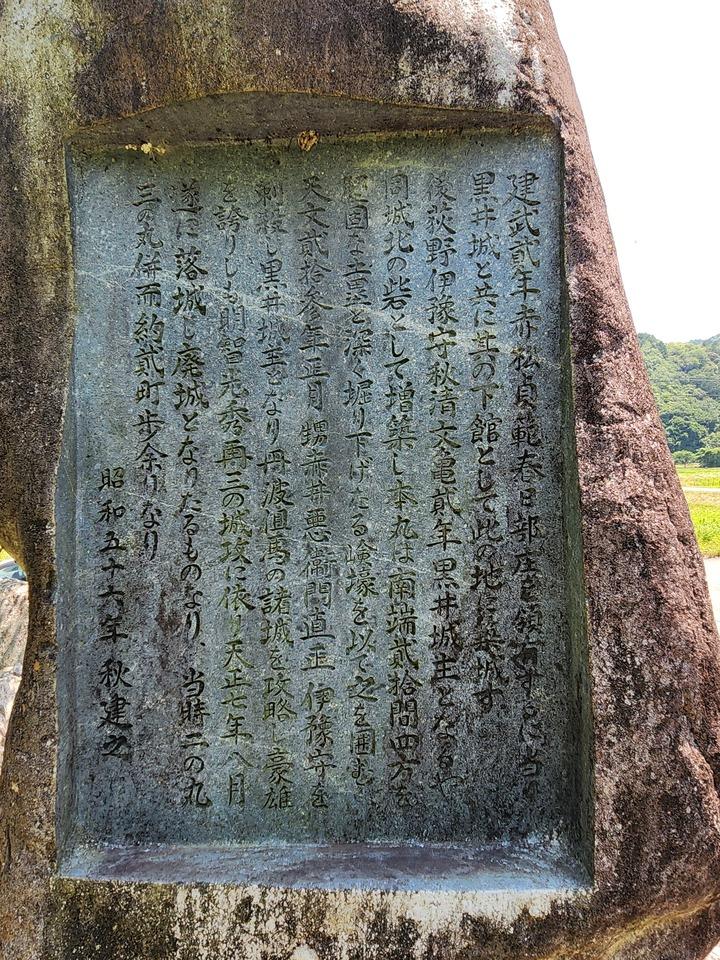 建武貳年赤松貞範春日部庄を領有するに当り
黒井城と共に其の下館として此の地に築城す
後荻野伊豫守秋清文亀貳年黒井城主となるや
同城北の砦として増築し本丸は南端貳拾間四方を
堅固な土塁と深く堀り下げたる塹壕を以て之を囲む
天文貳拾参年正月甥赤井悪衛門直正伊豫守を
刺殺し黒井城主となり丹波但馬の諸城を攻略し豪雄
を誇りしも明智光秀再三の城攻に依り天正七年八月
遂に落城し廃城となりたるものなり、当時二の丸
三の丸併而約貳町歩余りなり
昭和五十六年秋建之